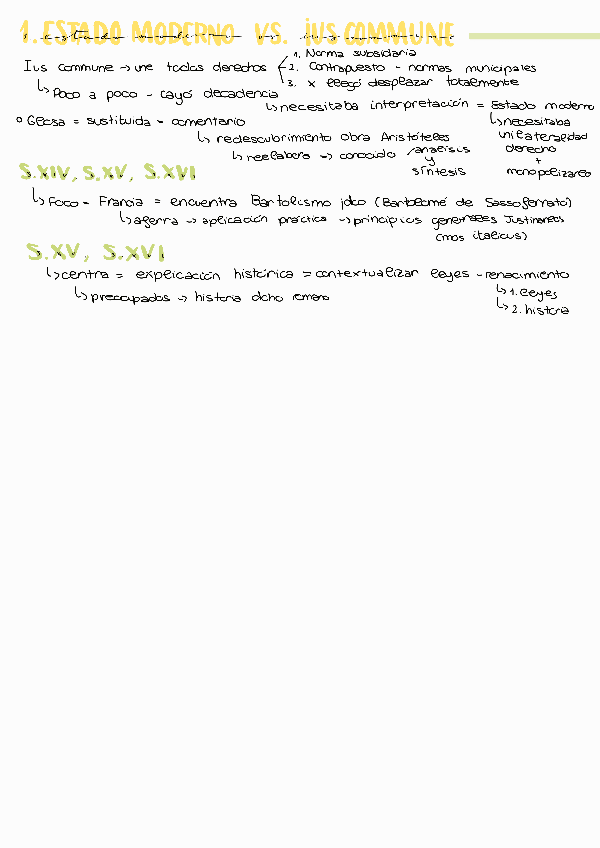 1. ESTADO MODERNO VS. IUS COMMUNE
Ius commune → une todos derechos
1. Norma subsidiaria
2. Contrapuesto - normas municipales
3. x llegó desplazar totalmente
↳ Poco a poco - cayó decadencia
↳ necesitaba interpretación = Estado moderno
↳ necesitaba unilateralidad derecho + monopolizarlo
° Glosa = sustituida - comentario
↳ redescubrimiento obra Aristóteles
↳ reelabora → conocido análisis y síntesis
S.XIV, S.XV, S.XVI
↳ Foco - Francia = encuentra Bartolismo jdco (Bartolomé de Sassoferrato)
↳ aferra → aplicación práctica → principios generales Justineos
(mos italicus)
S.XV, S.XVI
↳ centra = explicación histórica = contextualizar leyes - renacimiento
↳ 1. leyes
↳ 2. historia
↳ preocupados → historia dcho romano